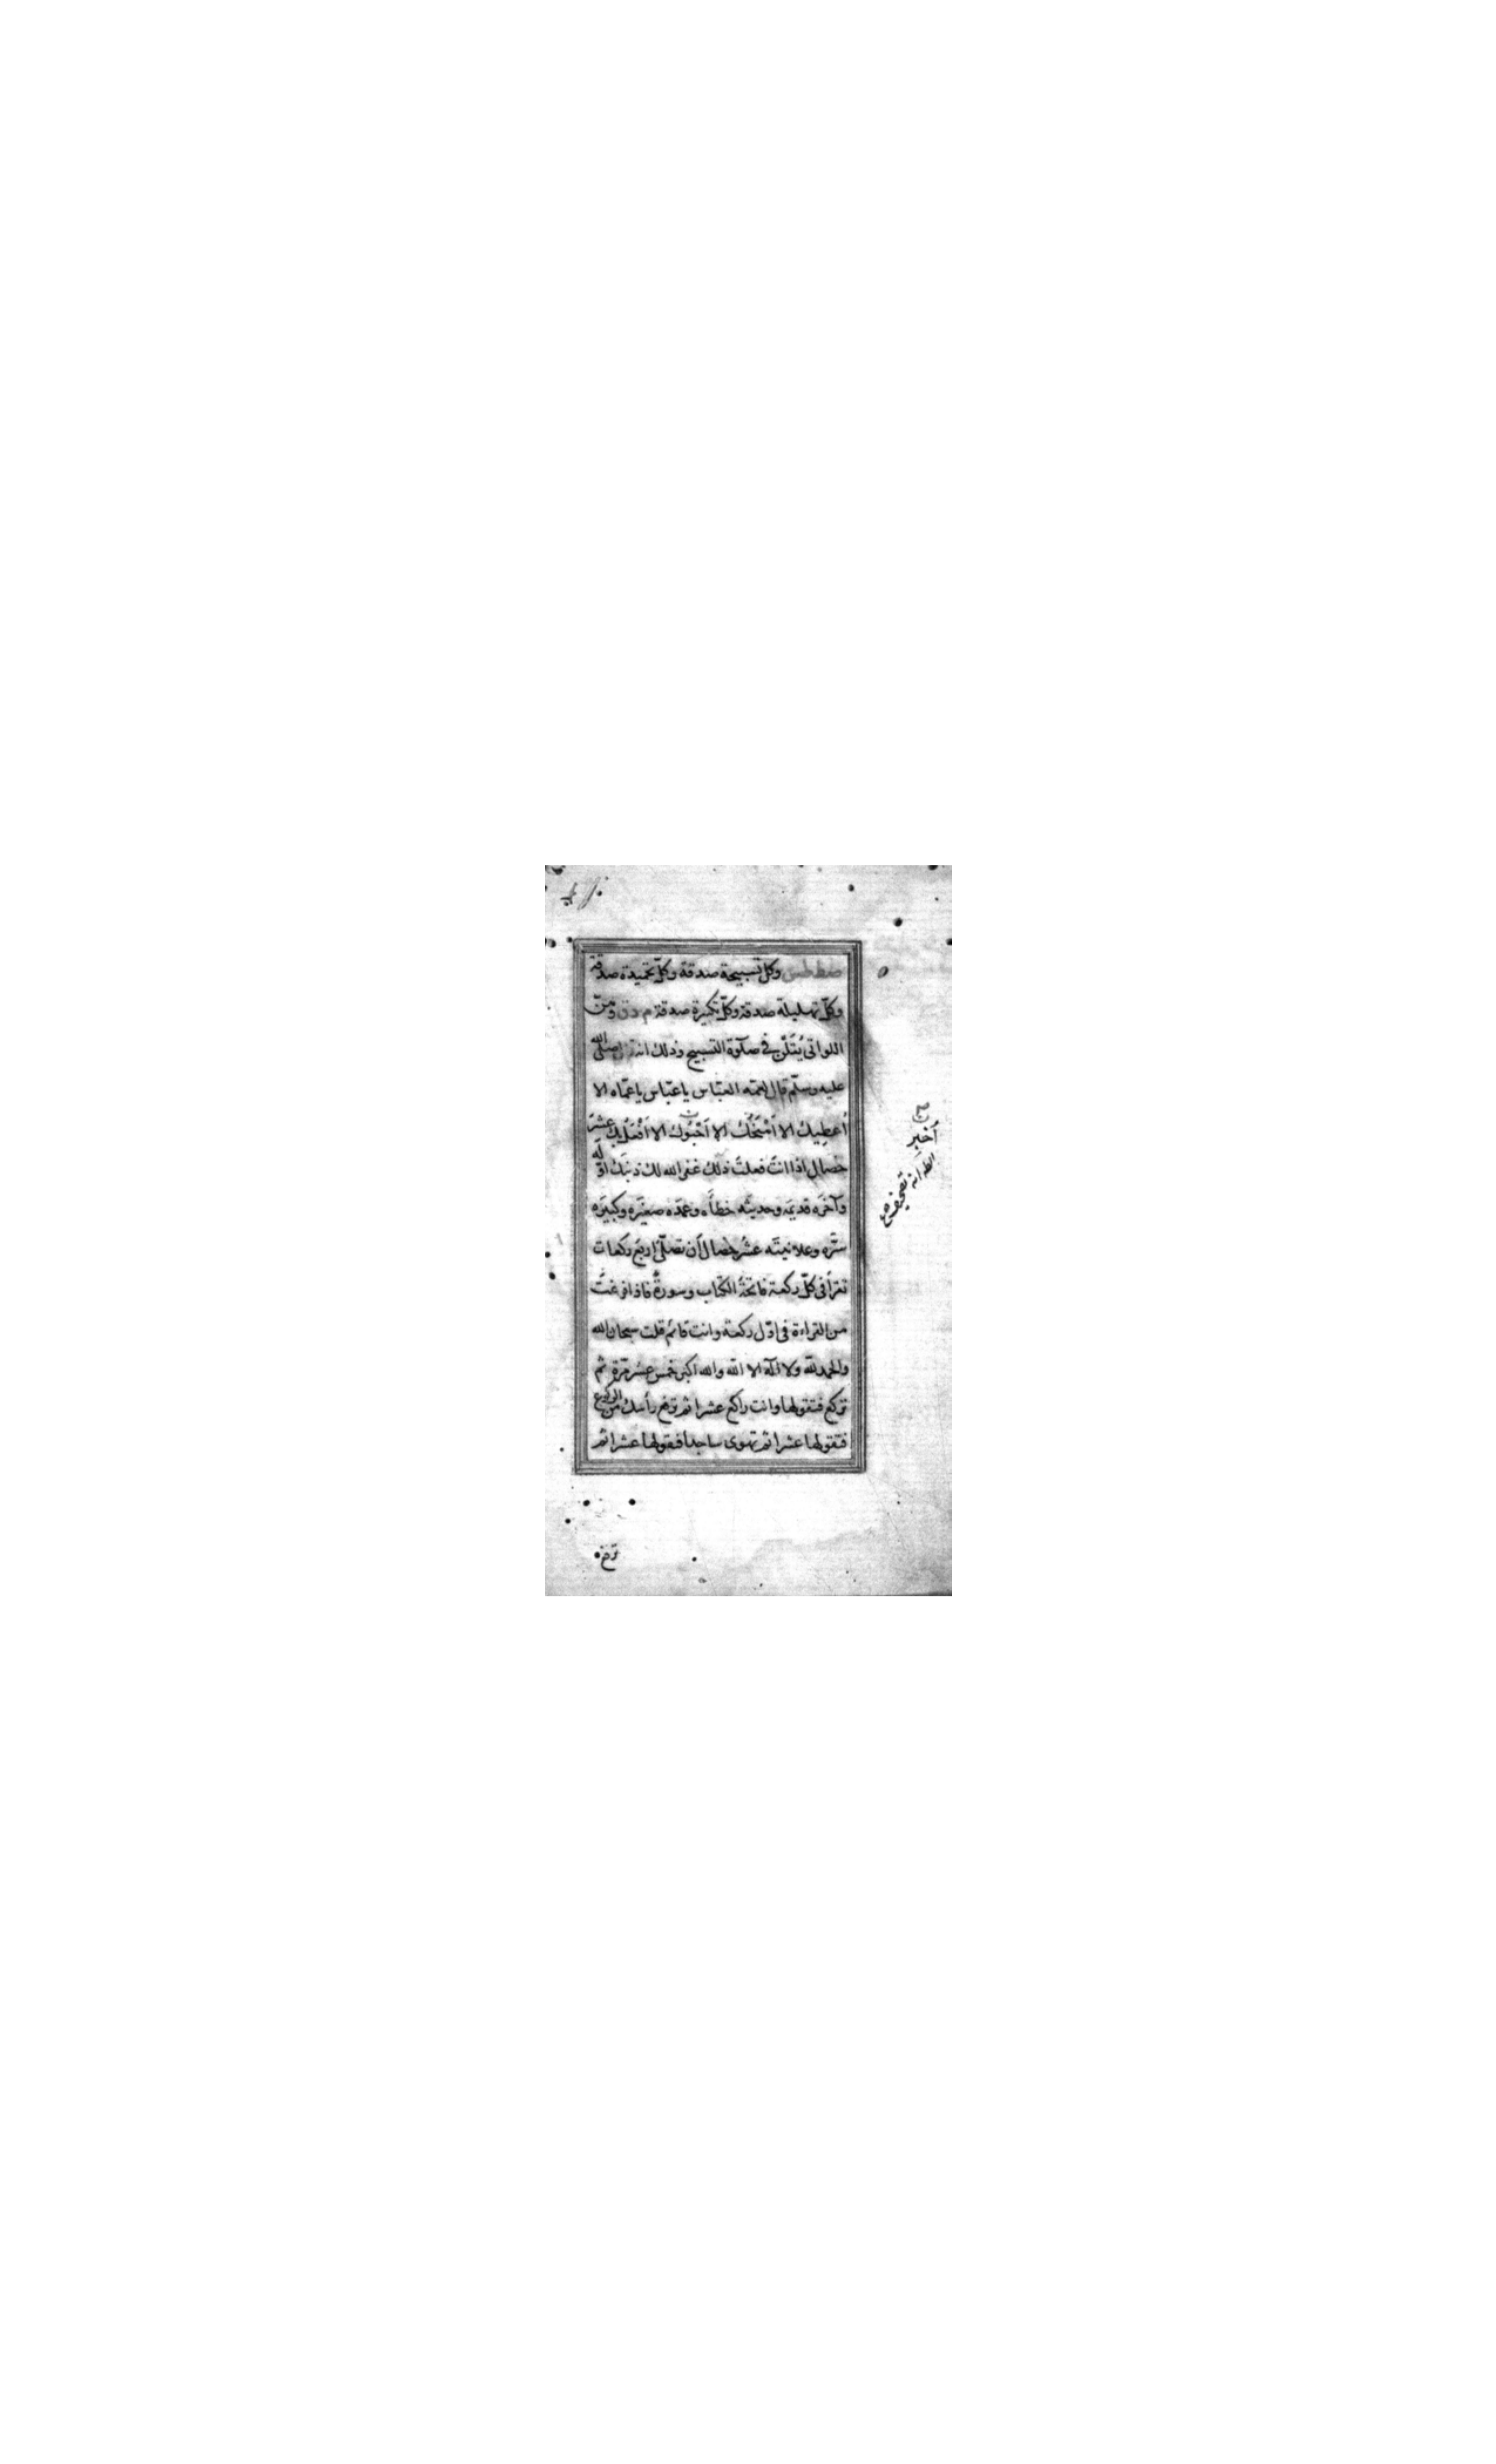 مص ط مس وكلّ تسبيحة صدقة وكلّ تحميدة صدقة
وكلّ تهليلة صدقة وكلّ تكبيرة صدقة م د ق وهنّ
اللواتى يُتلَن فى صلوة التسبيح وذلك انه صلى الله
عليه وسلّم قال لعمّه العبّاس يا عبّاس يا عمّاه الا
اُعطِيك الا اَمْنَحُك الا اَحْبُوك الا اَفْعَلُ بك عشرَ
خصال اذا انتَ فعلتَ ذلك غفر الله لك ذنبَك اوّله
وآخرَه قديمَه وحديثَه خطأَه وعمدَه صغيرَه وكبيرَه
سرَّه وعلانيتَه عشرُ خصال أن تصلّىَ اربعَ ركعات
تقرأ فى كلّ ركعة فاتحةَ الكتاب وسورةً فاذا فرغتَ
من القراءة فى اوّل ركعة وانت قائم قلت سبحان الله
والحمد لله ولا اله الا الله والله اكبر خمس عشر مرّة ثم
تركع فتقولها وانت راكع عشرا ثم ترفع رأسك من الركوع
فتقولها عشرا ثم تهوى ساجدا فتقولها عشرا ثم
ترفع
اُخبِر